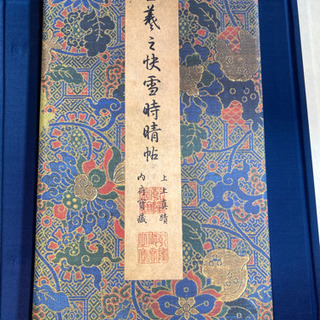 羲之快雪時晴帖
上上真蹟
內府寶藏